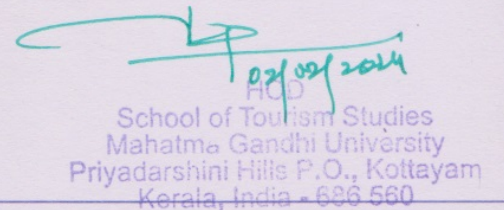 02/02/2024
HOD
School of Tourism Studies
Mahatma Gandhi University
Priyadarshini Hills P.O., Kottayam
Kerala, India - 686 560